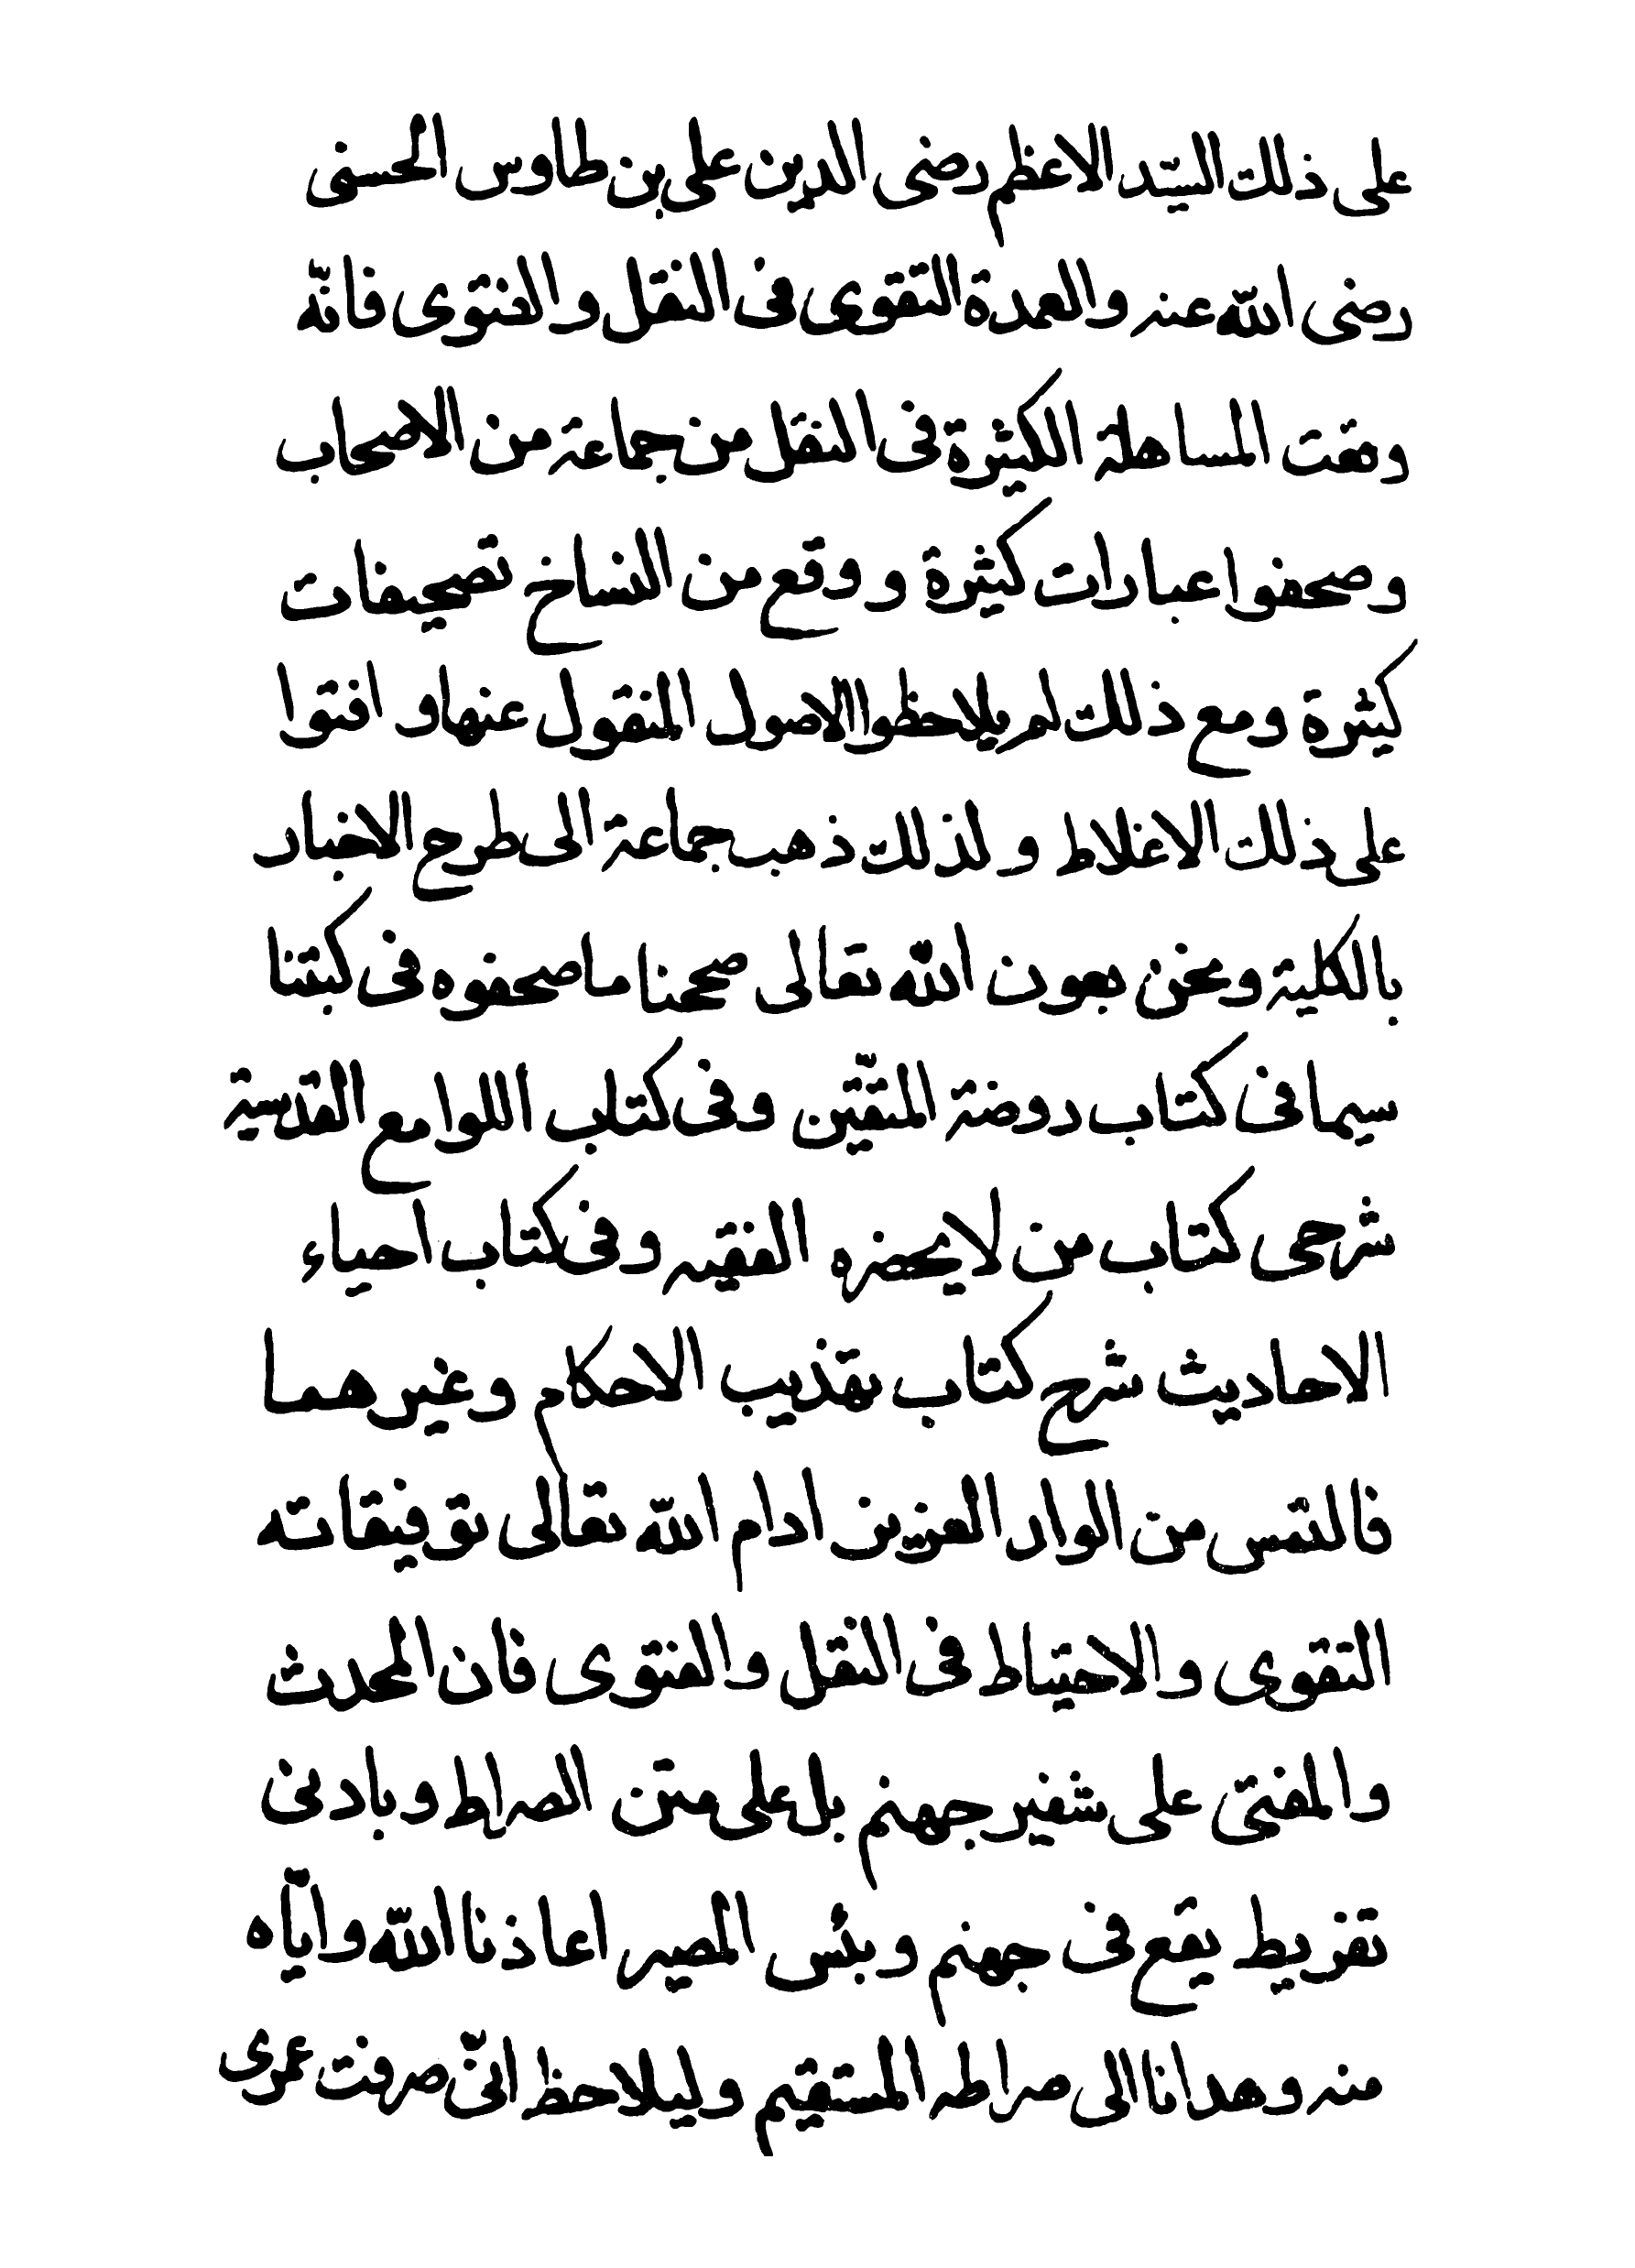 على ذلك السيّد الاعظم رضى الدين على بن طاوس الحسنى
رضى اللّه عنه والعمدة التقوى فى النقل والفتوى فانّه
وقعت المساهلة الكثيرة فى النقل من جماعة من الاصحاب
وصحفوا عبارات كثيرة ووقع من النساخ تصحيفات
كثيرة ومع ذلك لم يلاحظوا الاصول المنقول عنها و افتوا
على ذلك الاغلاط ولذلك ذهب جماعة الى طرح الاخبار
بالكلية ونحن بعون اللّه تعالى صححنا ما صحفوه فى كتبنا
سيما فى كتاب روضة المتّقين وفى كتاب اللوامع القدسية
شرحى كتاب من لا يحضره الفقيه وفى كتاب احياء
الاحاديث شرح كتاب تهذيب الاحكام وغيرهما
فالتمس من الولد العزيز ادام اللّه تعالى توفيقاته
التقوى والاحتياط فى النقل والفتوى فان المحدث
والمفتى على شفير جهنم بل على متن الصراط وبادنى
تفريط يقع فى جهنم وبئس المصير اعاذنا اللّه وايّاه
منه وهدانا الى صراطه المستقيم وليلاحظ انّى صرفت عمرى